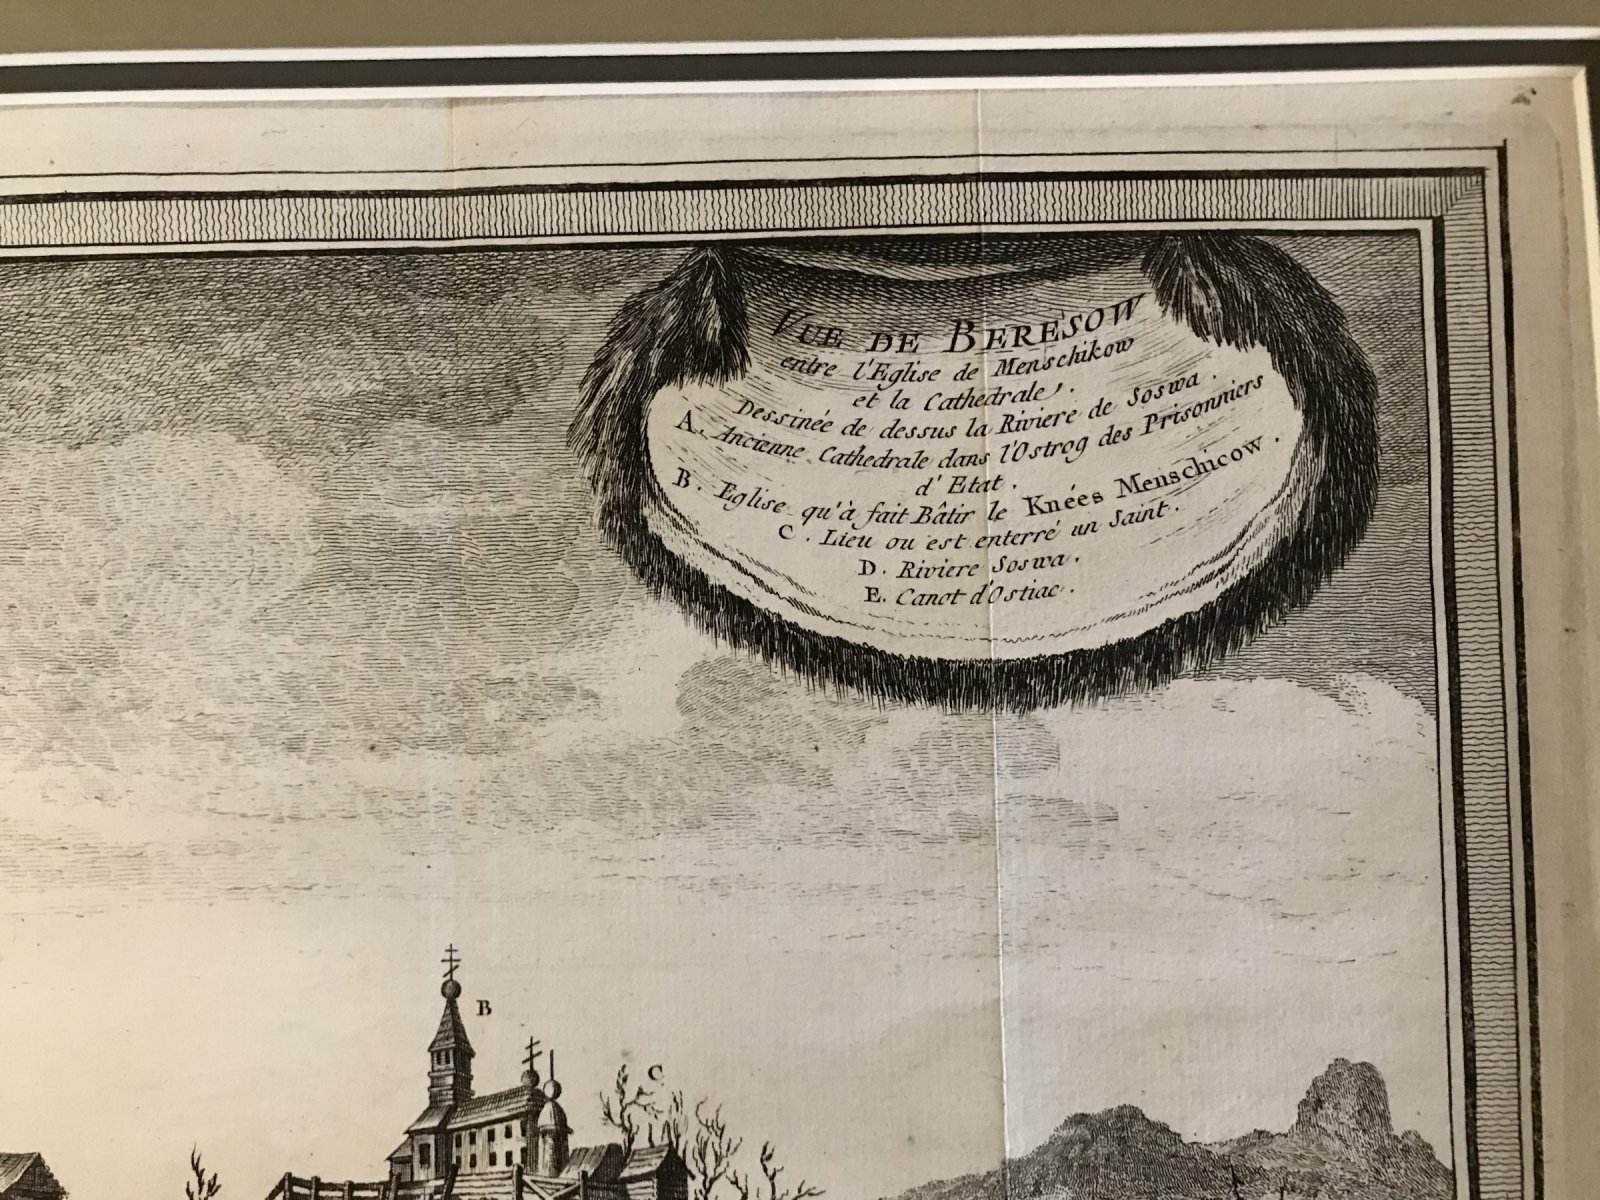 VUE DE BERESOW
entre l'Eglise de Menschikow
et la Cathedrale.
Dessinée de dessus la Riviere de Soswa.
A. Ancienne Cathedrale dans l'Ostrog des Prisonniers
d'Etat.
B. Eglise qu'à fait Bâtir le Knées Menschicow.
C. Lieu ou est enterré un Saint.
D. Riviere Soswa.
E. Canot d'Ostiac.
B
C